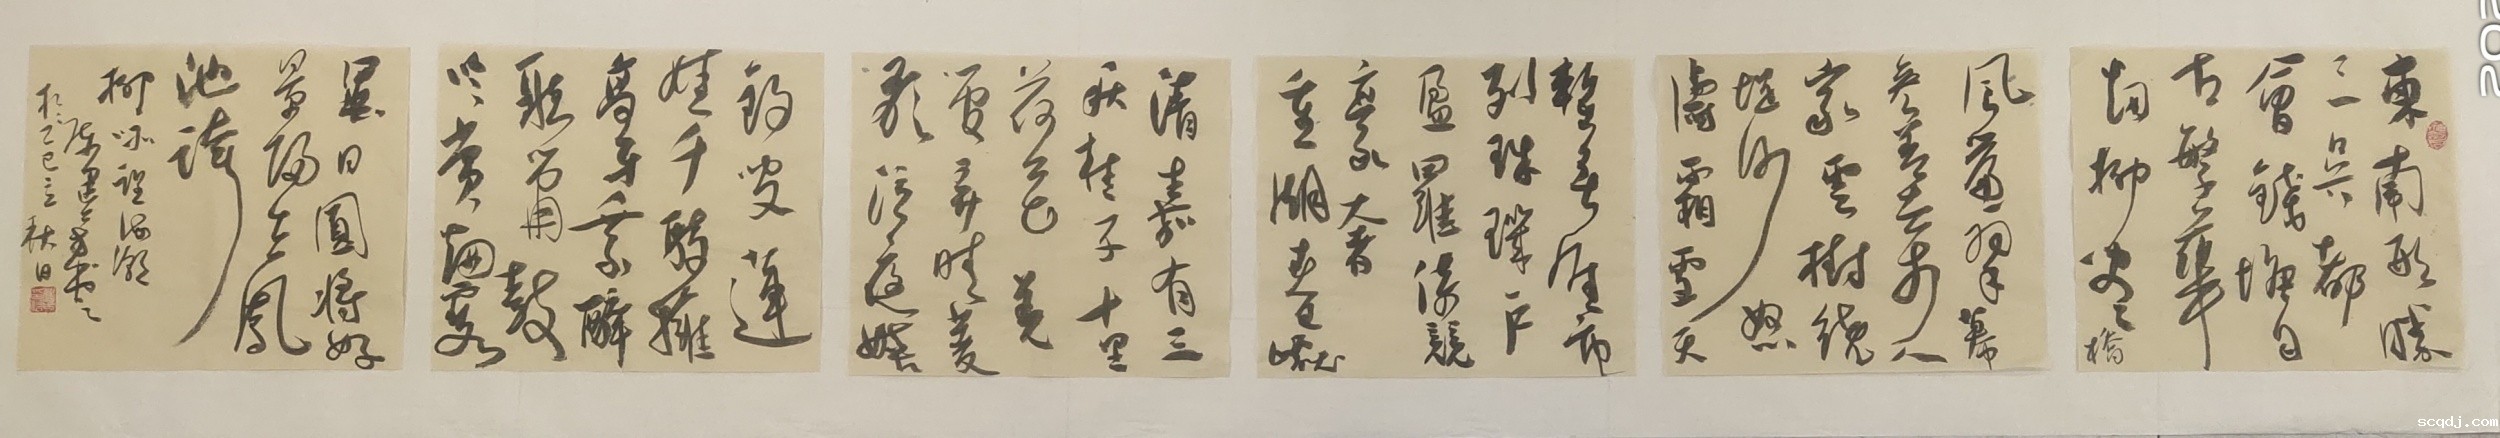 東南形勝
三吳都
會錢塘自
古繁華
烟柳畫橋
風簾翠幕
參差十萬人
家雲樹繞
堤沙怒
濤霜雪天
塹無涯市
列珠璣戶
盈羅綺競
豪奢
重湖疊巘
清嘉有三
秋桂子十里
荷花羌
管弄晴菱
歌泛夜嬉
釣叟蓮
娃千騎擁
高牙乘醉
聽簫鼓
吟賞烟霞
異日圖將好
景歸去鳳
池誇
柳永望海潮
於乙巳立秋日
202
scqdj.com